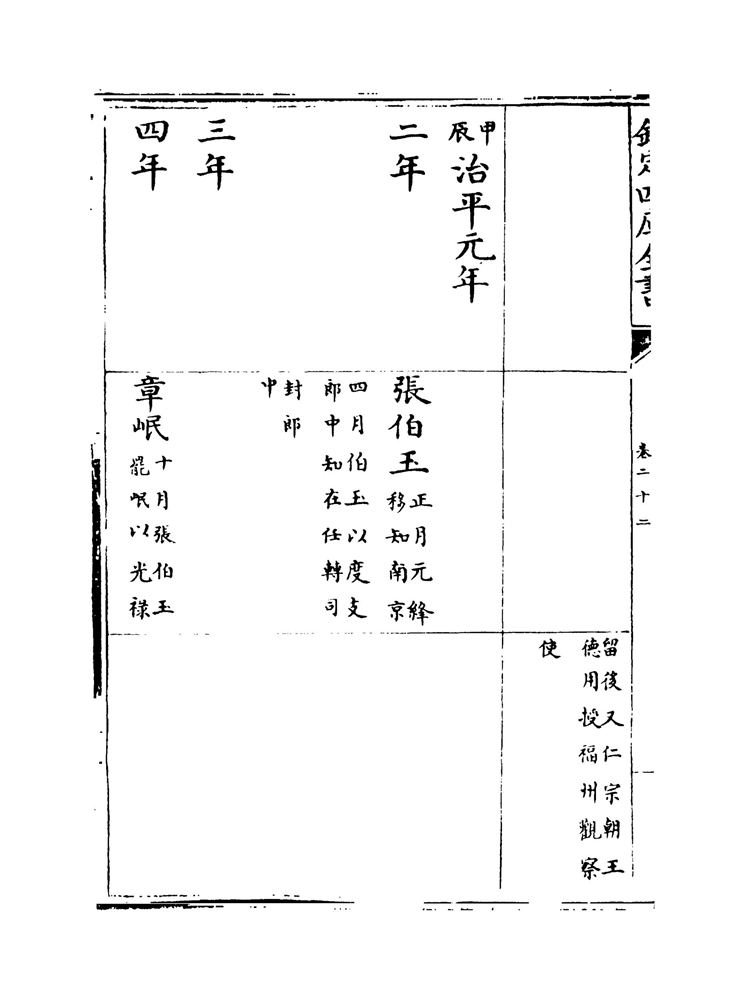 欽定四庫全書
卷二十二
留後又仁宗朝王
德用授福州觀察
使
甲辰治平元年
二年
張伯玉
正月元絳
移知南京
四月伯玉以度支
郎中知在任轉司
封郎
中
三年
四年
章岷
十月張伯玉
罷岷以光祿